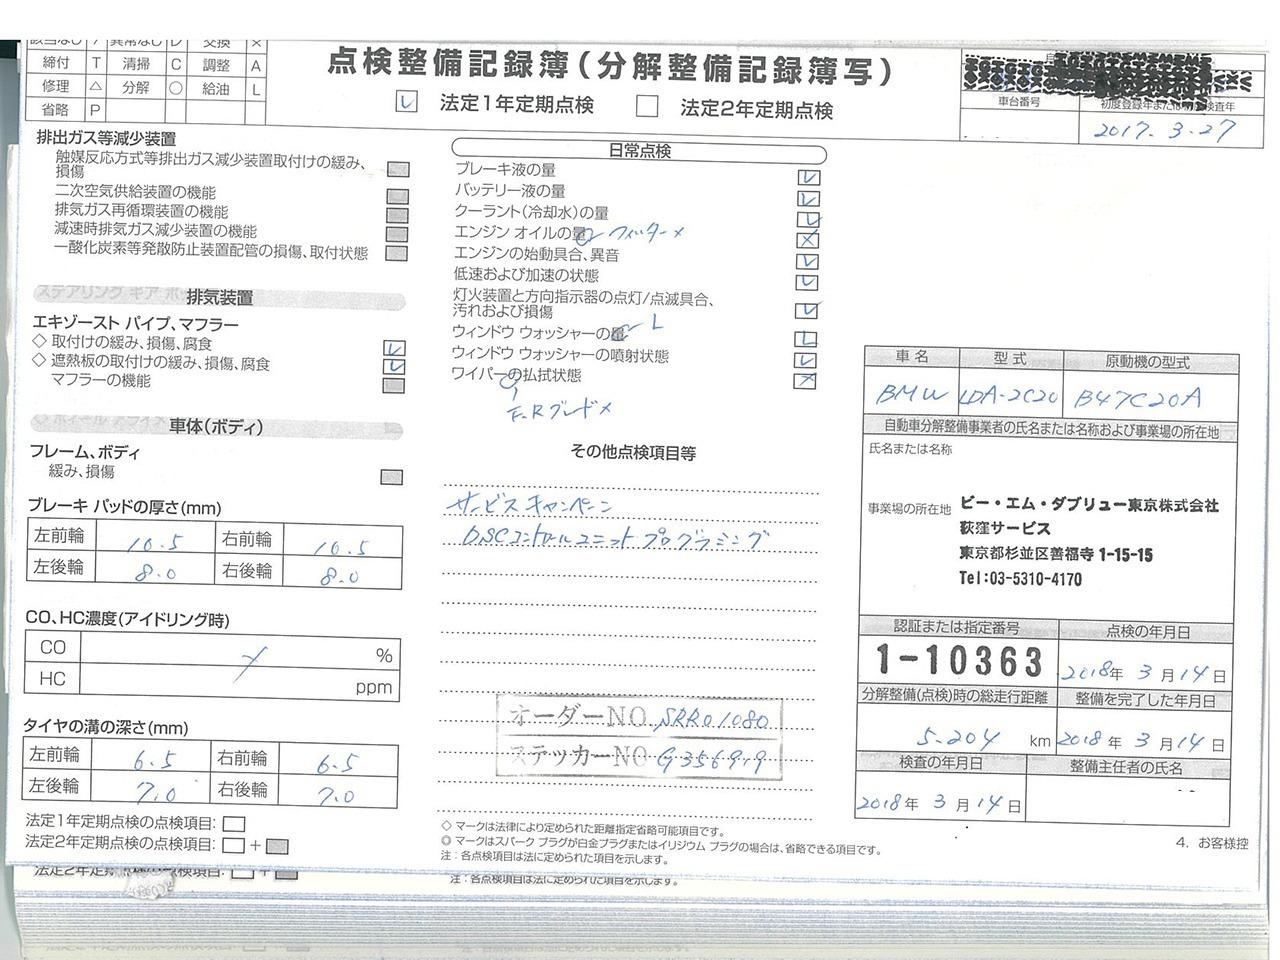 該当なし / 異常なし レ 交換 ×
締付 T 清掃 C 調整 A
修理 △ 分解 ○ 給油 L
省略 P
点検整備記録簿(分解整備記録簿写)
レ 法定1年定期点検 法定2年定期点検
車台番号
2017. 3. 27
排出ガス等減少装置
触媒反応方式等排出ガス減少装置取付けの緩み、
損傷
二次空気供給装置の機能
排気ガス再循環装置の機能
減速時排気ガス減少装置の機能
一酸化炭素等発散防止装置配管の損傷、取付状態
ステアリング ギア ボ
排気装置
エキゾースト パイプ、マフラー
◇ 取付けの緩み、損傷、腐食 レ
◇ 遮熱板の取付けの緩み、損傷、腐食 レ
マフラーの機能
車体(ボディ)
フレーム、ボディ
緩み、損傷
ブレーキ パッドの厚さ(mm)
左前輪 10.5 右前輪 10.5
左後輪 8.0 右後輪 8.0
CO、HC濃度(アイドリング時)
CO %
HC ppm
タイヤの溝の深さ(mm)
左前輪 6.5 右前輪 6.5
左後輪 7.0 右後輪 7.0
法定1年定期点検の点検項目:
法定2年定期点検の点検項目: +
日常点検
ブレーキ液の量 レ
バッテリー液の量 レ
クーラント(冷却水)の量 レ
エンジン オイルの量 フィルター× ×
エンジンの始動具合、異音 レ
低速および加速の状態 レ
灯火装置と方向指示器の点灯/点滅具合、
汚れおよび損傷 レ
ウィンドウ ウォッシャーの量 L L
ウィンドウ ウォッシャーの噴射状態 レ
ワイパーの払拭状態 ×
F.Rブレード×
その他点検項目等
サービスキャンペーン
DSCコントロールユニットプログラミング
オーダーNO. SRR01080
ステッカーNO G356919
◇ マークは法律により定められた距離指定省略可能項目です。
◎ マークはスパーク プラグが白金プラグまたはイリジウム プラグの場合は、省略できる項目です。
注:各点検項目は法に定められた項目を示します。
車名 型式 原動機の型式
BMW LDA-2C20 B47C20A
自動車分解整備事業者の氏名または名称および事業場の所在地
氏名または名称
事業場の所在地
ビー・エム・ダブリュー東京株式会社
荻窪サービス
東京都杉並区善福寺1-15-15
Tel:03-5310-4170
認証または指定番号 点検の年月日
1-10363 2018年 3月14日
分解整備(点検)時の総走行距離 整備を完了した年月日
5.204 km 2018年 3月14日
検査の年月日 整備主任者の氏名
2018年 3月14日
4. お客様控
法定2年定期点検の点検項目: +
注:各点検項目は法に定められた項目を示します。